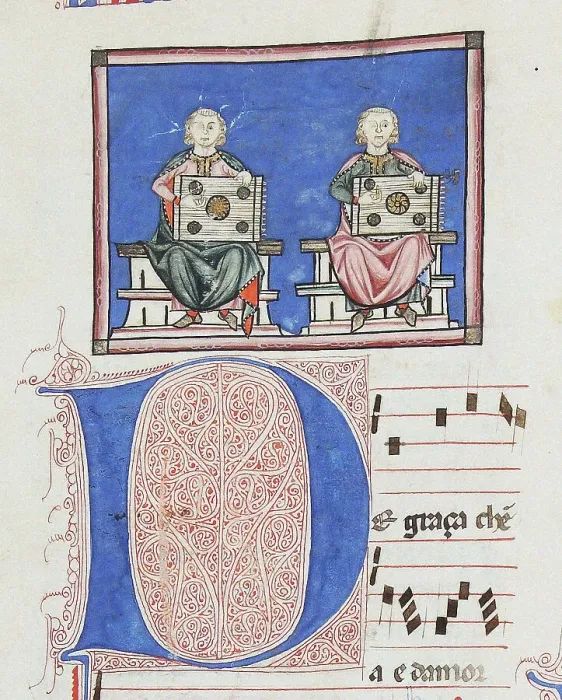 DE graça chẽ
a e damor